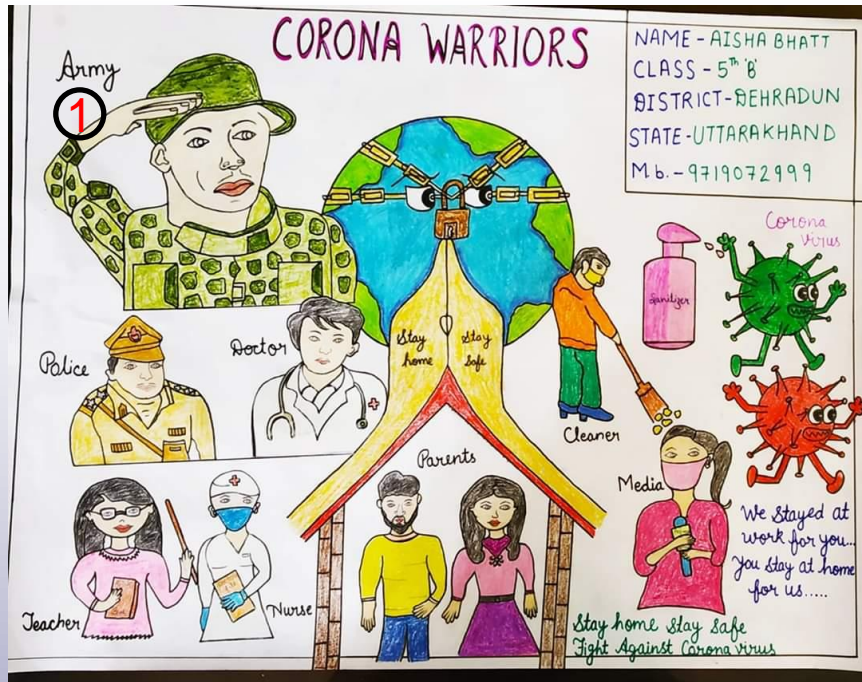 CORONA WARRIORS
NAME - AISHA BHATT
CLASS - 5th 'B'
DISTRICT - DEHRADUN
STATE - UTTARAKHAND
M.b. - 9719072999
Army
1
Corona
virus
Sanitizer
Police
Doctor
Stay
home
Stay
Safe
Cleaner
Parents
Media
Teacher
Nurse
We Stayed at
work for you...
You stay at home
for us.....
Stay home Stay Safe
Fight Against Corona virus